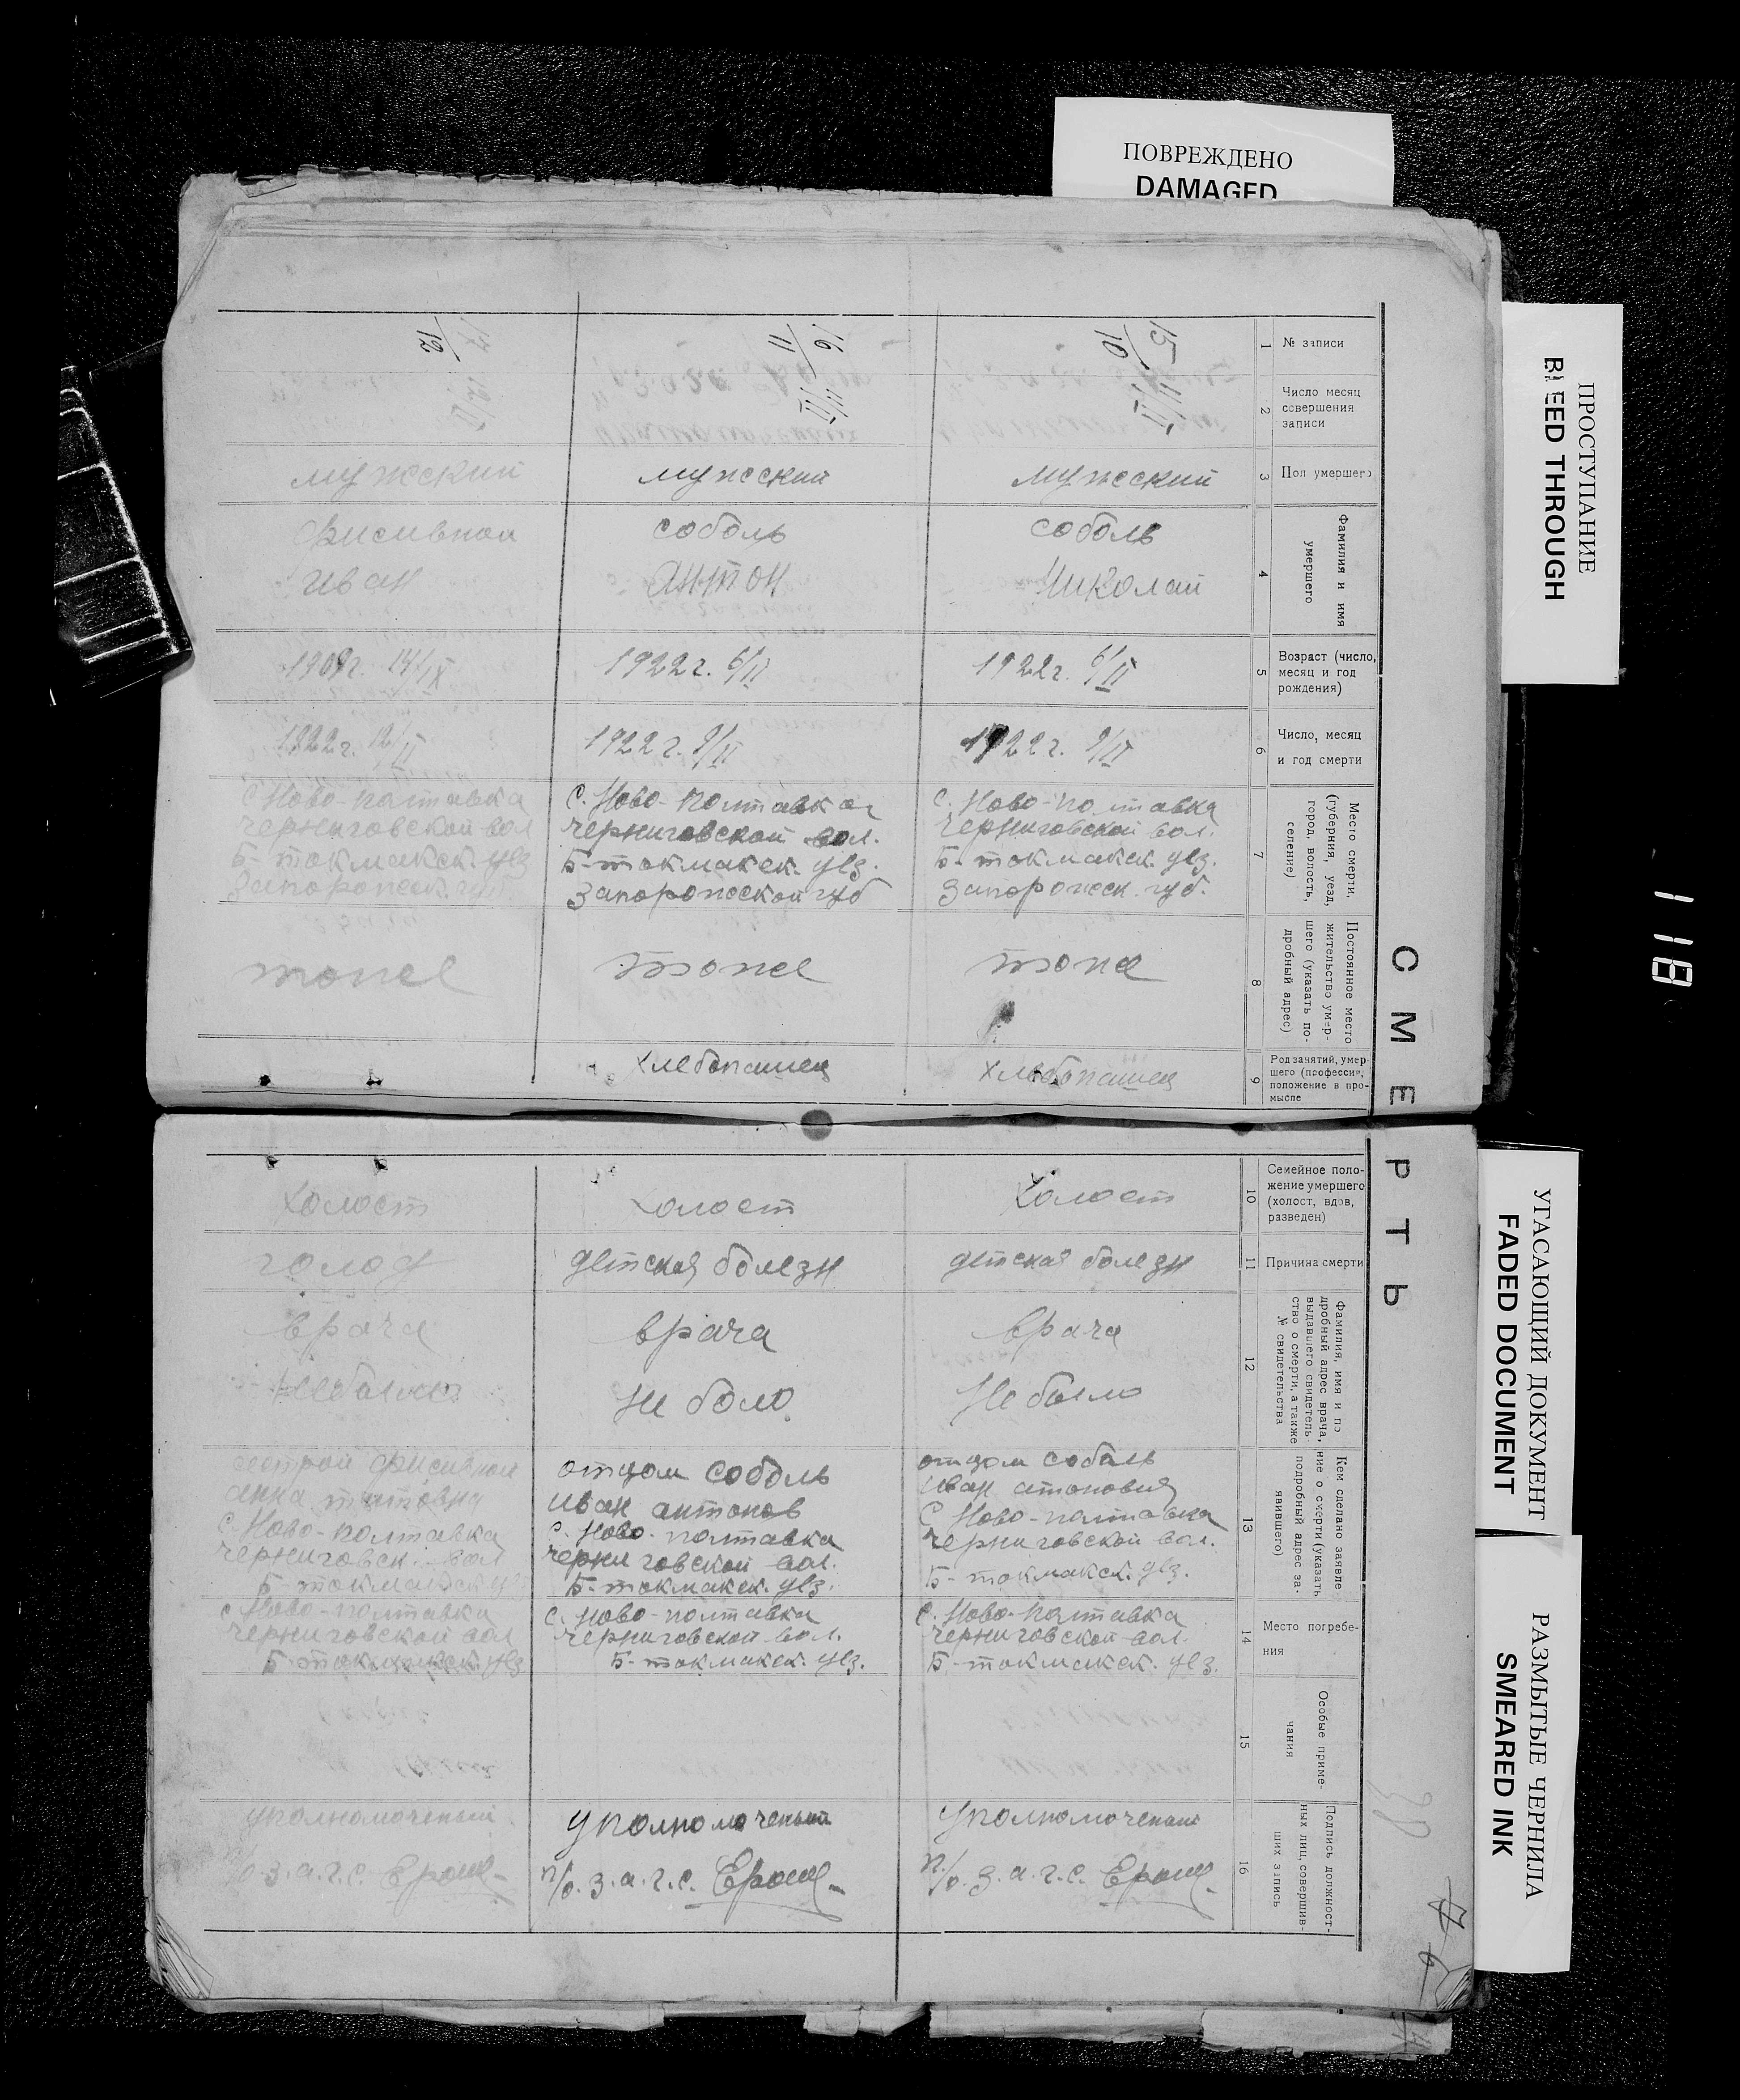 ПОВРЕЖДЕНО
DAMAGED
ПРОСТУПАНИЕ
BLEED THROUGH
УГАСАЮЩИЙ ДОКУМЕНТ
FADED DOCUMENT
РАЗМЫТЫЕ ЧЕРНИЛА
SMEARED INK
118
СМЕРТЬ
1
№ записи
15/10
16/11
17/12
2
Число месяц
совершения
записи
11/II
11/II
12/II
3
Пол умершего
мужеский
мужеский
мужеский
4
Фамилия и имя
умершего
соболь
Николай
соболь
антон
иван
5
Возраст (число,
месяц и год
рождения)
1922г. 6/II
1922г. 6/II
1909г. 14/IX
6
Число, месяц
и год смерти
1922г. 9/II
1922г. 9/II
1922г. 12/II
7
Место смерти.
(губерния, уезд,
город, волость,
селение)
с. Ново-полтавка
черниговской вол.
Б-токмакск. уез.
Запорожск. губ.
с. Ново-полтавка
черниговской вол.
Б-токмакск. уез.
Запорожской губ
с Ново-полтавка
черниговской вол
Б-токмакск. уез
Запорожск. губ
8
Постоянное место
жительство умер-
шего (указать по-
дробный адрес)
тоже
тоже
тоже
9
Род занятий, умер-
шего (профессия,
положение в про-
мысле
хлебопашец
хлебопашец
10
Семейное поло-
жение умершего
(холост, вдов,
разведен)
холост
холост
холост
11
Причина смерти
детская болезн
детская болезн
голод
12
Фамилия, имя и по
дробный адрес врача,
выдавшего свидетель-
ство о смерти, а также
№ свидетельства
врача
Не было
врача
Не боло
врача
Небыло
13
Кем сделано заявле
ние о смерти (указать
подробный адрес за-
явившего)
отцом соболь
иван атонович
с Ново-полтавка
черниговской вол.
Б-токмакск. уез.
отцом соболь
иван антонов
с. Ново-полтавка
черниговской вол.
Б-токмакск. уез.
анна
с. Ново-полтавка
черниговск. вол
Б-токмакск
14
Место погребе-
ния
с. Ново-полтавка
черниговской вол.
Б-токмакск. уез.
с. Ново-полтавка
черниговской вол.
Б-токмакск. уез.
с Ново-полтавка
черниговской вол
Б-токмакск. уез
15
Особые приме-
чания
16
Подпись должност-
ных лиц, совершив-
ших запись
уполномоченый
п/о. з.а.г.с.
уполномоченый
п/о. з.а.г.с.
уполномоченый
п/о з.а.г.с.